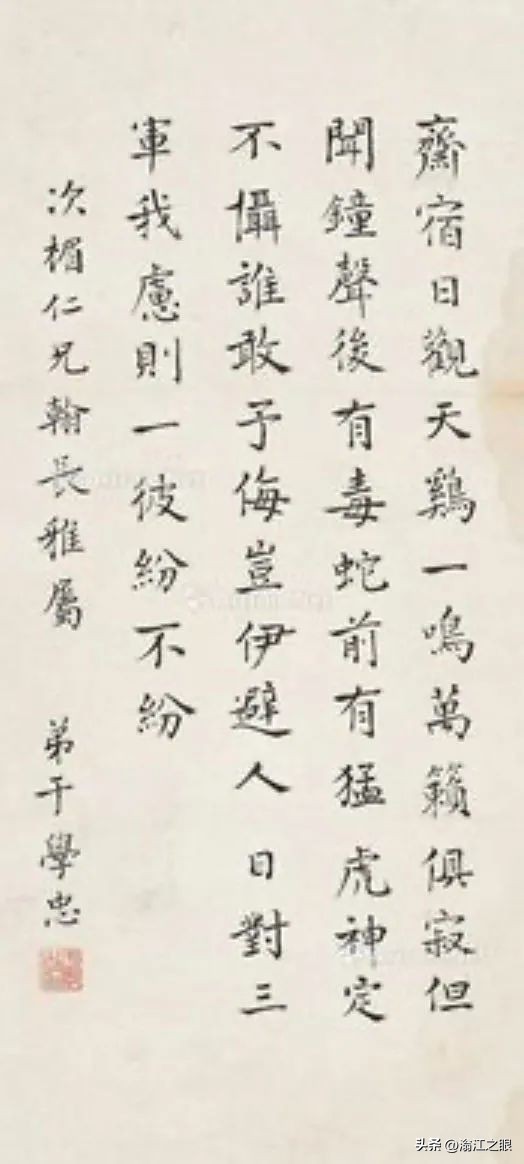 齋宿日觀天鷄一鳴萬籟俱寂但
聞鐘聲後有毒蛇前有猛虎神定
不懾誰敢予侮豈伊避人日對三
軍我慮則一彼紛不紛
次楣仁兄翰長雅屬
弟于學忠
头条@渝江之眼